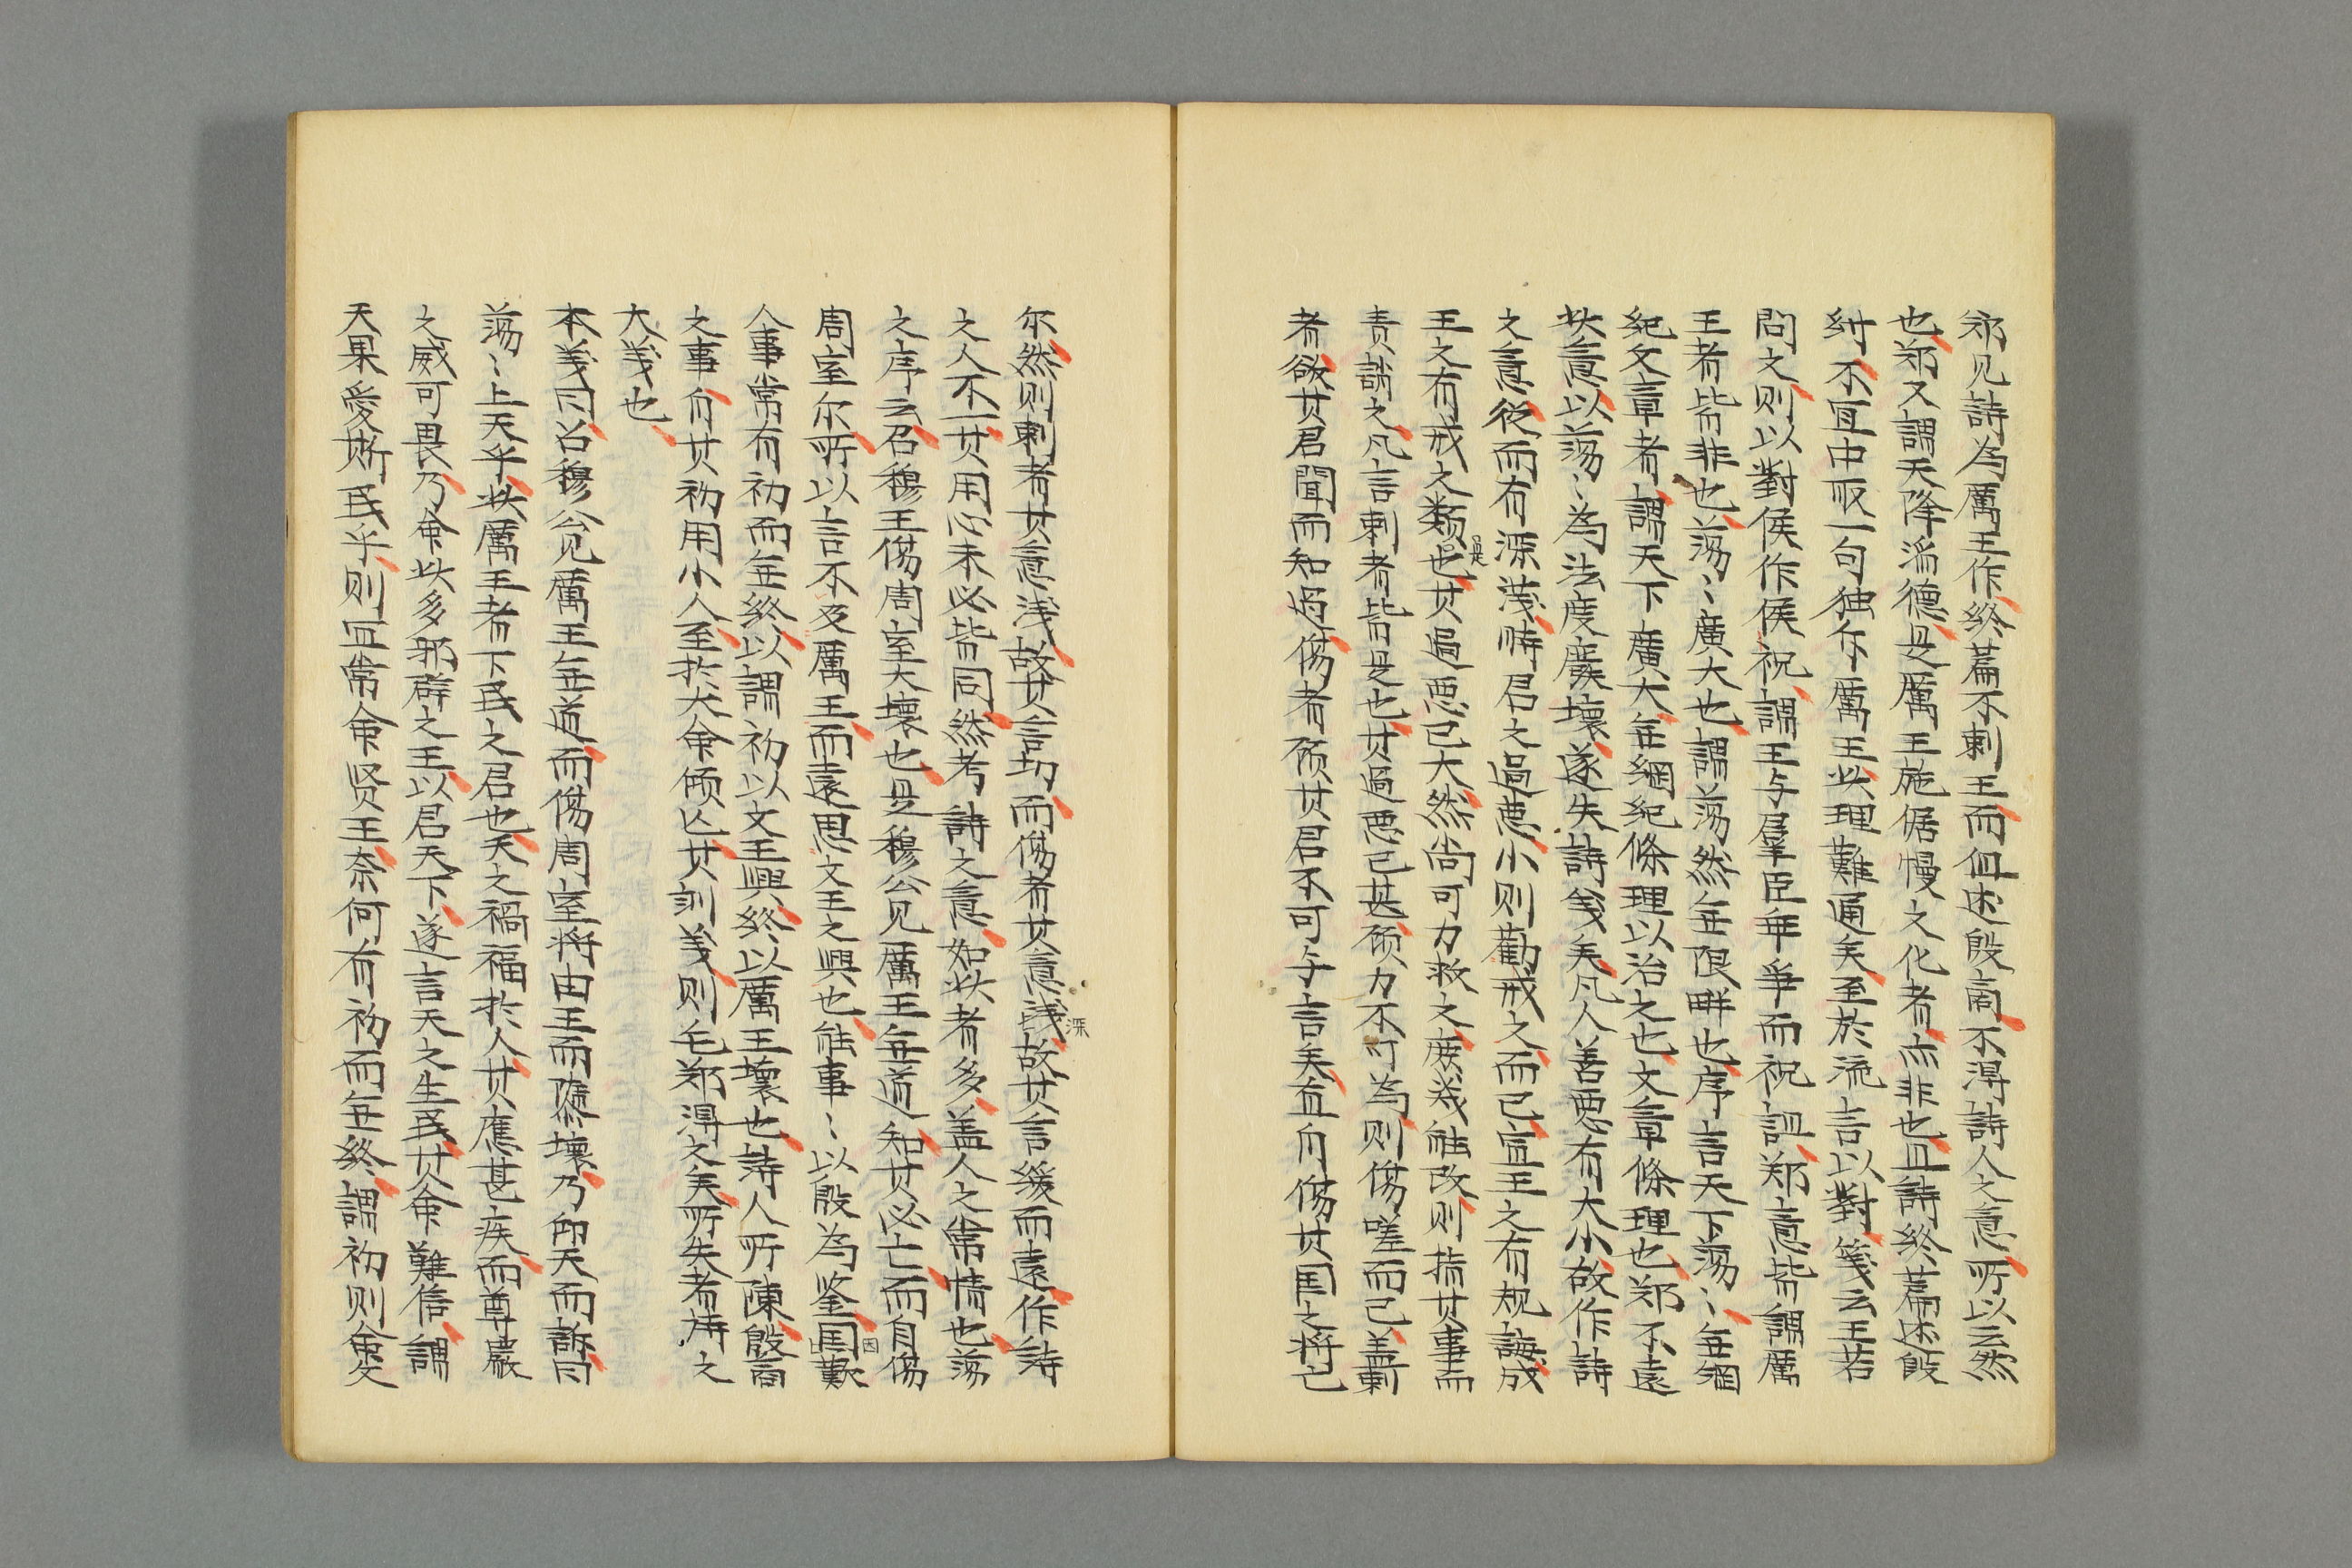 郑见詩為厲王作終篇不刺王而但述殷商不淂詩人之意所以云然
也郑又謂天降滔德是厲王施倨慢之化者亦非也且詩終篇述殷
紂不宜中取一句独斥厲王此理難通矣至於流言以對箋云王若
問之則以對侯作侯祝謂王与羣臣乖爭而祝詛郑意皆謂厲
王者皆非也蕩〻廣大也謂蕩然無限畔也序言天下蕩〻無綱
紀文章者謂天下廣大無綱紀條理以治之也文章條理也郑不遠
此意以蕩〻為法度廢壞遂失詩義矣凡人善悪有大小故作詩
之意從而有深浅時君之過悪小則勸戒之而已宣王之有規誨成
王之有戒之類是也其過悪已大然尚可力救之庶幾能改則指其事而
責誚之凡言刺者皆是也其過悪已甚顾力不可為則傷嗟而已盖刺
者欲其君聞而知過傷者顾其君不可与言矣直自傷其国之将亡
尔然則刺者其意浅故其言切而傷者其意深故其言緩而遠作詩
之人不一其用心未必皆同然考詩之意如此者多盖人之常情也蕩
之序云召穆王傷周室大壞也是穆公见厲王無道知其必亡而自傷
周室尔所以言不及厲王而遠思文王之興也能事〻以殷為鉴因歎
人事常有初而無終以謂初以文王興終以厲王壞也詩人所陳殷商
之事自其初用小人至於大命倾亡其訓義則毛郑淂之矣所失者詩之
大義也
本義曰召穆公见厲王無道而傷周室将由王而隳壞乃仰天而訴曰
蕩〻上天乎此厲王者下民之君也天之禍福於人其應甚疾而尊嚴
之威可畏乃命此多邪辟之王以君天下遂言天之生民其命難信謂
天果愛斯民乎則宜常命贤王奈何有初而無終謂初則命文